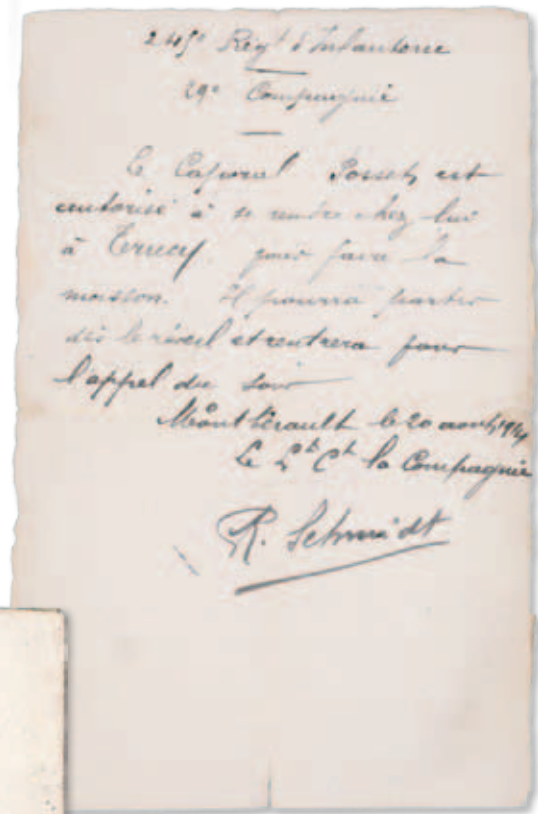 245e Régt d'Infanterie
29e Compagnie
Le Caporal Posset, est
autorisé à se rendre chez lui
à pour faire la
moisson. Il pourra partir
dès le réveil et rentrera pour
l'appel du soir
le 20 août 1914
Le Lt Ct la Compagnie
R. Schmidt